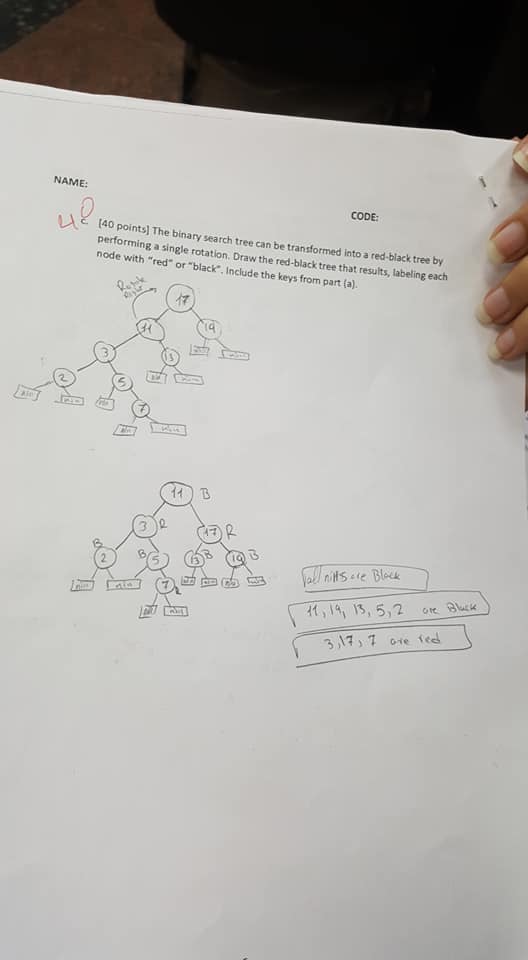 NAME:
CODE:
40
c. [40 points] The binary search tree can be transformed into a red-black tree by
performing a single rotation. Draw the red-black tree that results, labeling each
node with “red” or “black”. Include the keys from part (a).
Rotate
Right
17
11
19
3
13
nin
nin
2
5
nin
nin
nin
nin
nin
7
nin
nin
11 B
3 R
17 R
B
2
B
5
13 B
19 B
nin
nin
7
R
nin
nin
nin
nin
nin
nin
all nills are Black
11, 19, 13, 5, 2 are Black
3, 17, 7 are red